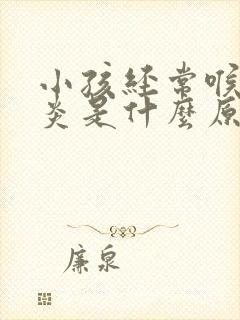 小孩經常喉
炎是什麼原
廉泉